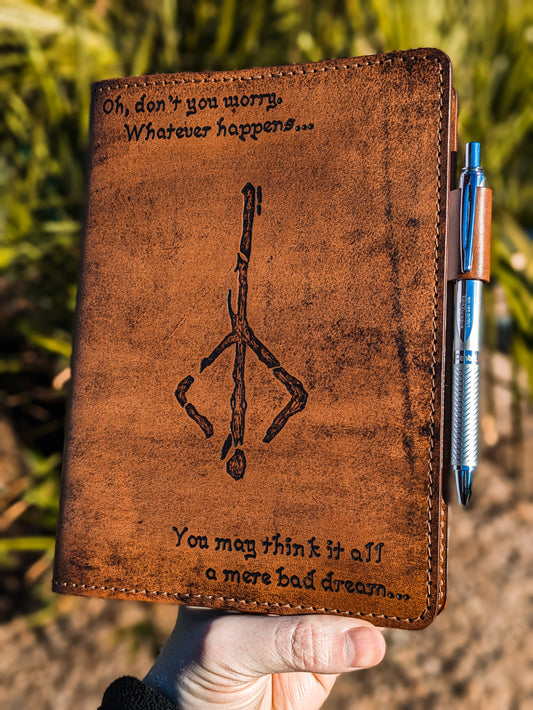 Oh, don't you worry.
Whatever happens...
You may think it all
a mere bad dream...